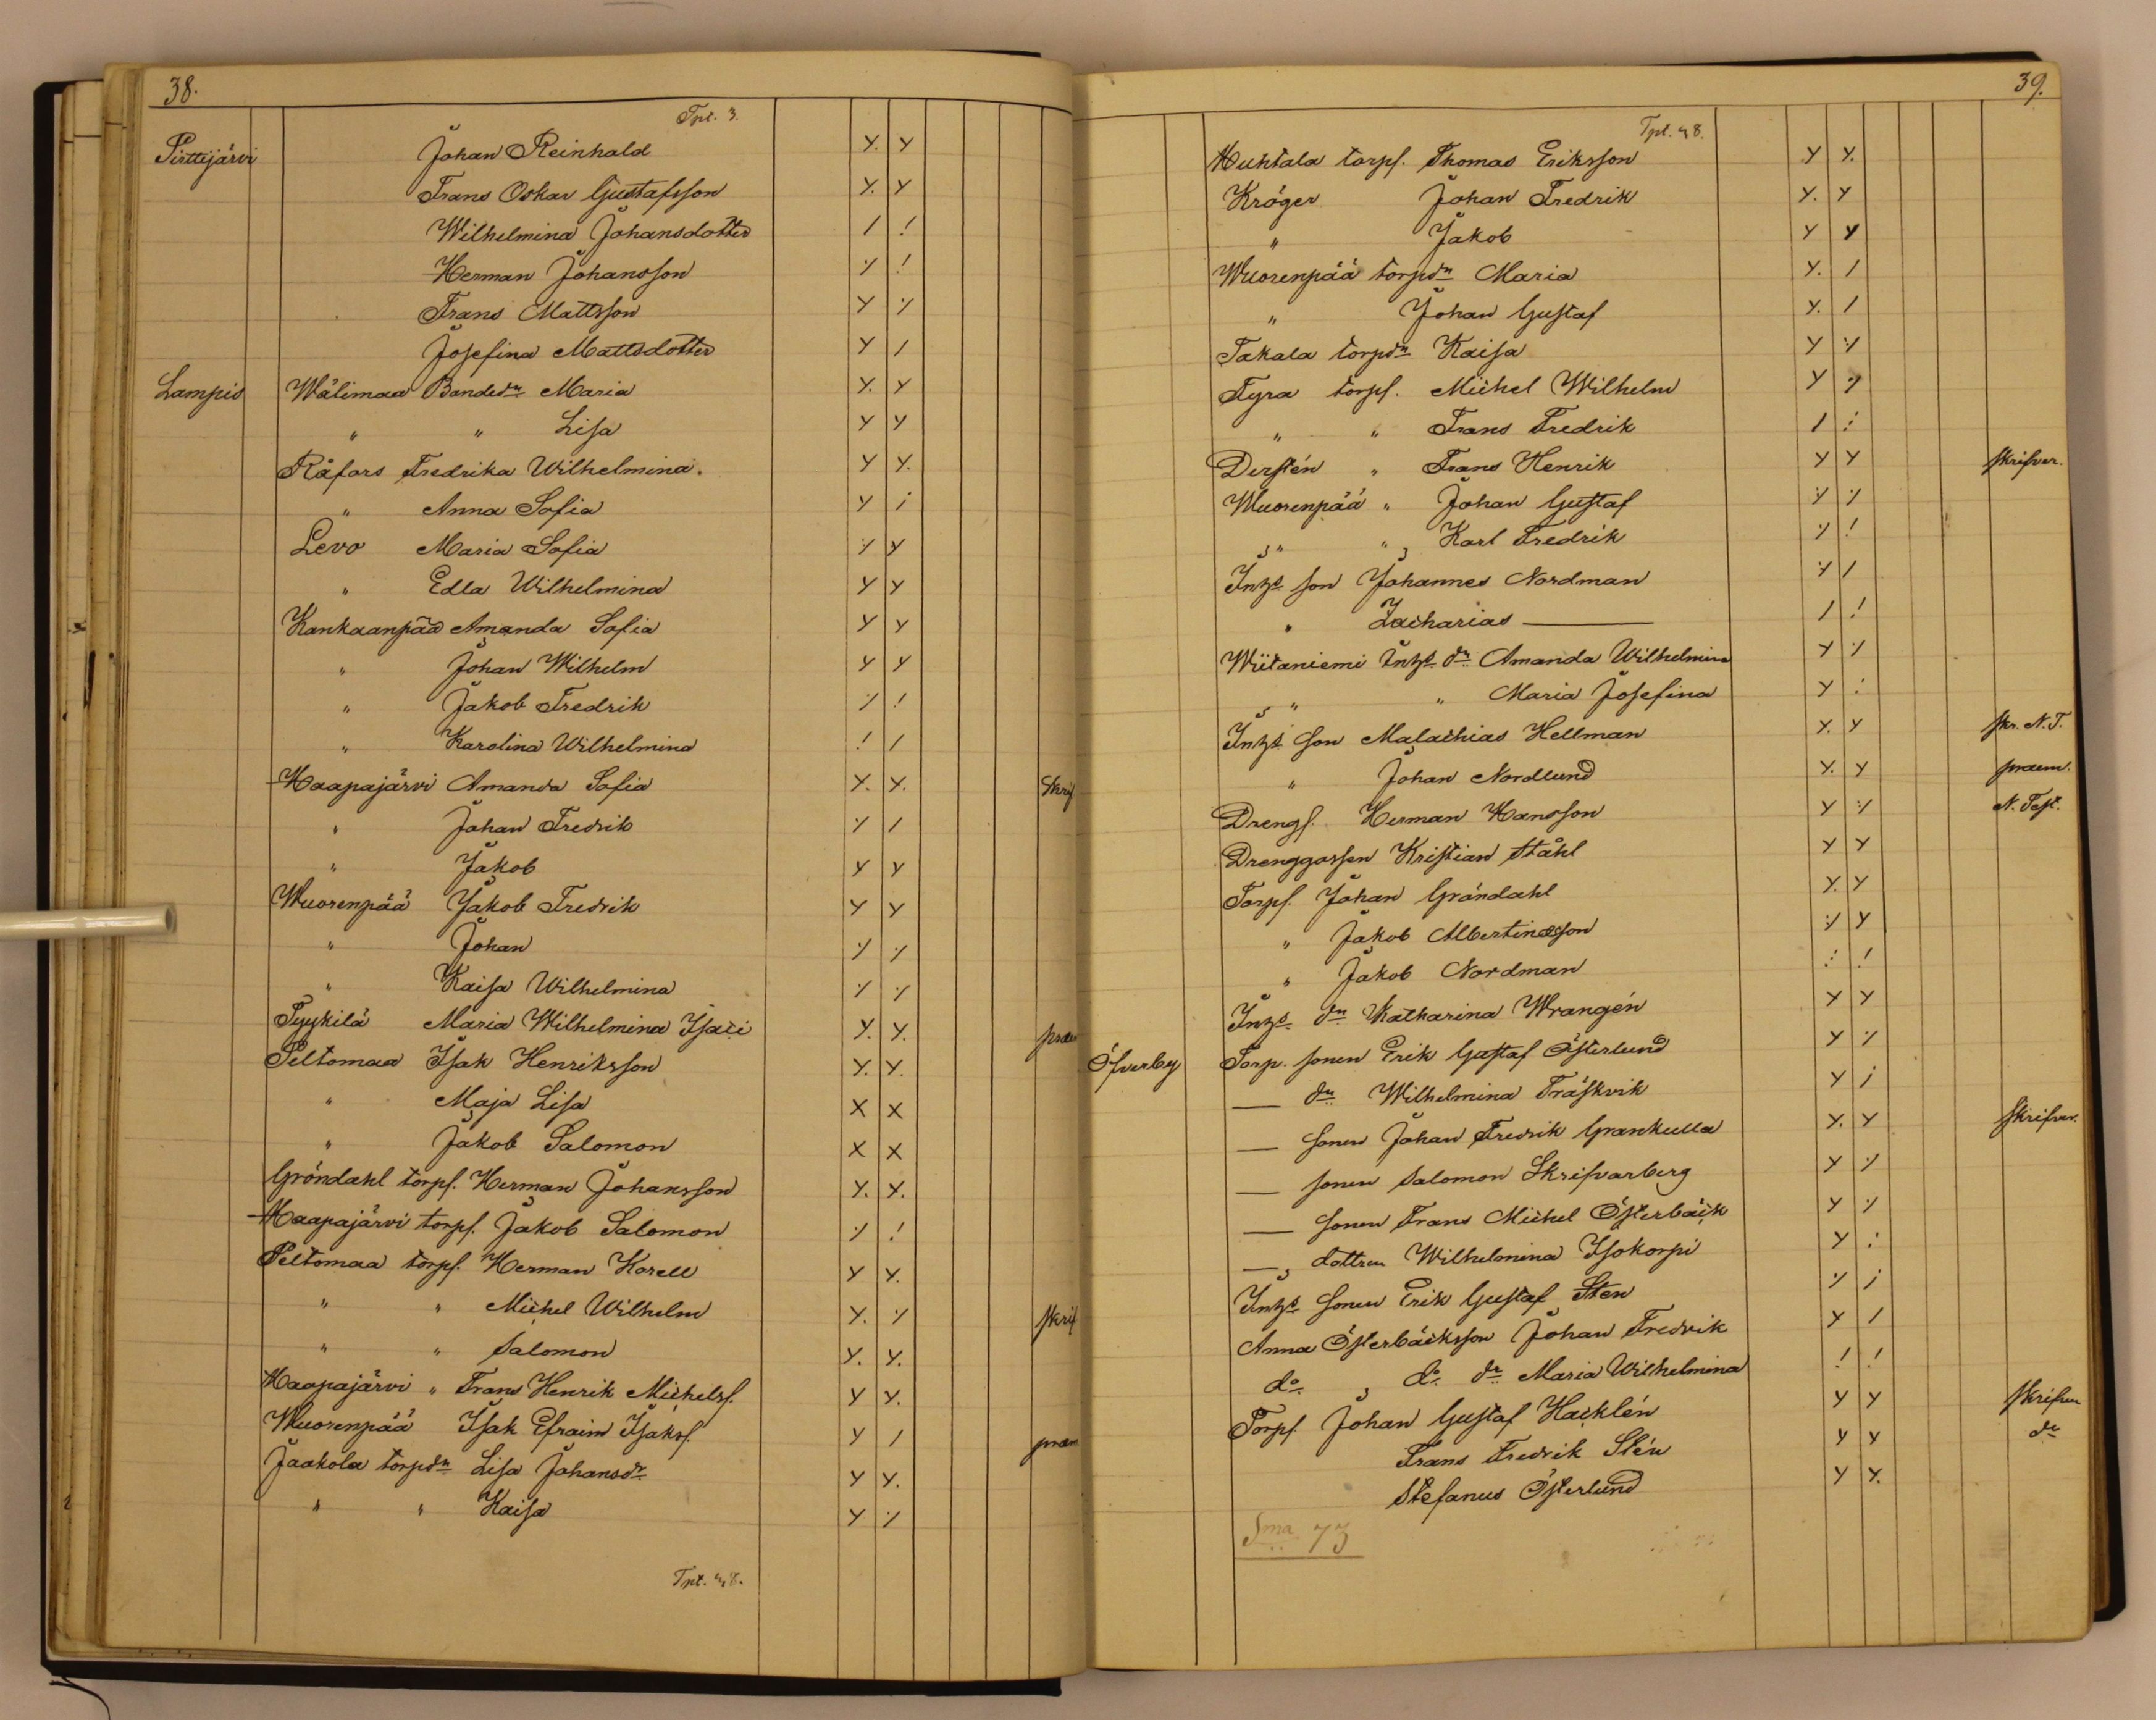 38.
Tpt. 3.
Pirttijärvi Johan Reinhold Y. Y
Frans Oskar Gustafsson Y. Y
Wilhelmina Johansdotter / !
Herman Johansson ·/ !
Frans Mattsson Y ·/·
Josefina Mattsdotter Y /
Lampis Wälimaa Bondedn Maria Y. Y
" " Lisa Y Y
Råfors Fredrika Wilhelmina. Y Y.
" Anna Sofia Y i
Levo Maria Sofia ·/ Y
" Edla Wilhelmina Y Y
Kankaanpää Amanda Sofia Y Y
" Johan Wilhelm Y Y
" Jakob Fredrik ·/ !
" Karolina Wilhelmina ! /
Haapajärvi Amanda Sofia Y. Y. Skrif
" Johan Fredrik ·/ /
" Jakob Y Y
Wuorenpää Jakob Fredrik Y Y
" Johan ·/ ·/
" Kaisa Wilhelmina ·/ ·/
Tyykilä Maria Wilhelmina Isaci Y. Y. præm
Peltomaa Isak Henriksson Y. Y.
" Maja Lisa X X
" Jakob Salomon X X
Gröndahl torps. Herman Johansson Y. Y.
Haapajärvi torps. Jakob Salomon ·/ !
Peltomaa torps. Herman Korell Y Y.
" " Michel Wilhelm Y. ·/ skrif
" " Salomon Y. Y.
Haapajärvi " Frans Henrik Michelss. Y Y.
Wuorenpää Isak Efraim Isakss. Y / præm
Jaakola torpdn Lisa Johansdr Y Y.
" " Kaisa Y ·/
Tpt. 48.
39.
Tpt. 48.
Huhtala torps. Thomas Eriksson Y Y.
Kröger Johan Fredrik Y. Y
" Jakob Y Y
Wuorenpää torpdn Maria Y. /
" Johan Gustaf Y. /
Takala torpdn Kaisa Y ·/
Fyra torps. Michel Wilhelm Y ·/
" " Frans Fredrik / :
Derstén " Frans Henrik Y Y skrifver.
Wuorenpää " Johan Gustaf ·/ ·/
" " Karl Fredrik ·/ !
Inhs. son Johannes Nordman ·/ /
" Zacharias — / !
Wiitaniemi inhs. dn Amanda Wilhelmina Y ·/
" " Maria Josefina Y :
Inhs. son Malachias Hellman Y. Y skr. N. T.
" Johan Nordlund Y. Y praem.
Drengs. Herman Hansson Y ·/ N. Test.
Drenggossen Kristian Ståhl Y Y
Torps. Johan Gröndahl Y. Y
" Jakob Albertinason ·/ Y
" Jakob Nordman : !
Inhs. dn Katharina Wrangén Y Y
Öfverby Torp. sonen Erik Gustaf Österlund Y ·/
— dn Wilhelmina Träskvik Y i
— sonen Johan Fredrik Grankulla Y. Y skrifver.
— sonen Salomon Skrifvarberg Y ·/
— sonen Frans Michel Österbäck Y ·/
— dottren Wilhelmina Isokorpi Y :
Inhs. sonen Erik Gustaf Sten ·/ i
Anna Österbäcks son Johan Fredrik Y /
do do dr Maria Wilhelmina ! !
Torps. Johan Gustaf Hacklén Y Y skrifver
Frans Fredrik Stén Y Y do
Stefanus Österlund Y Y.
Sma 73